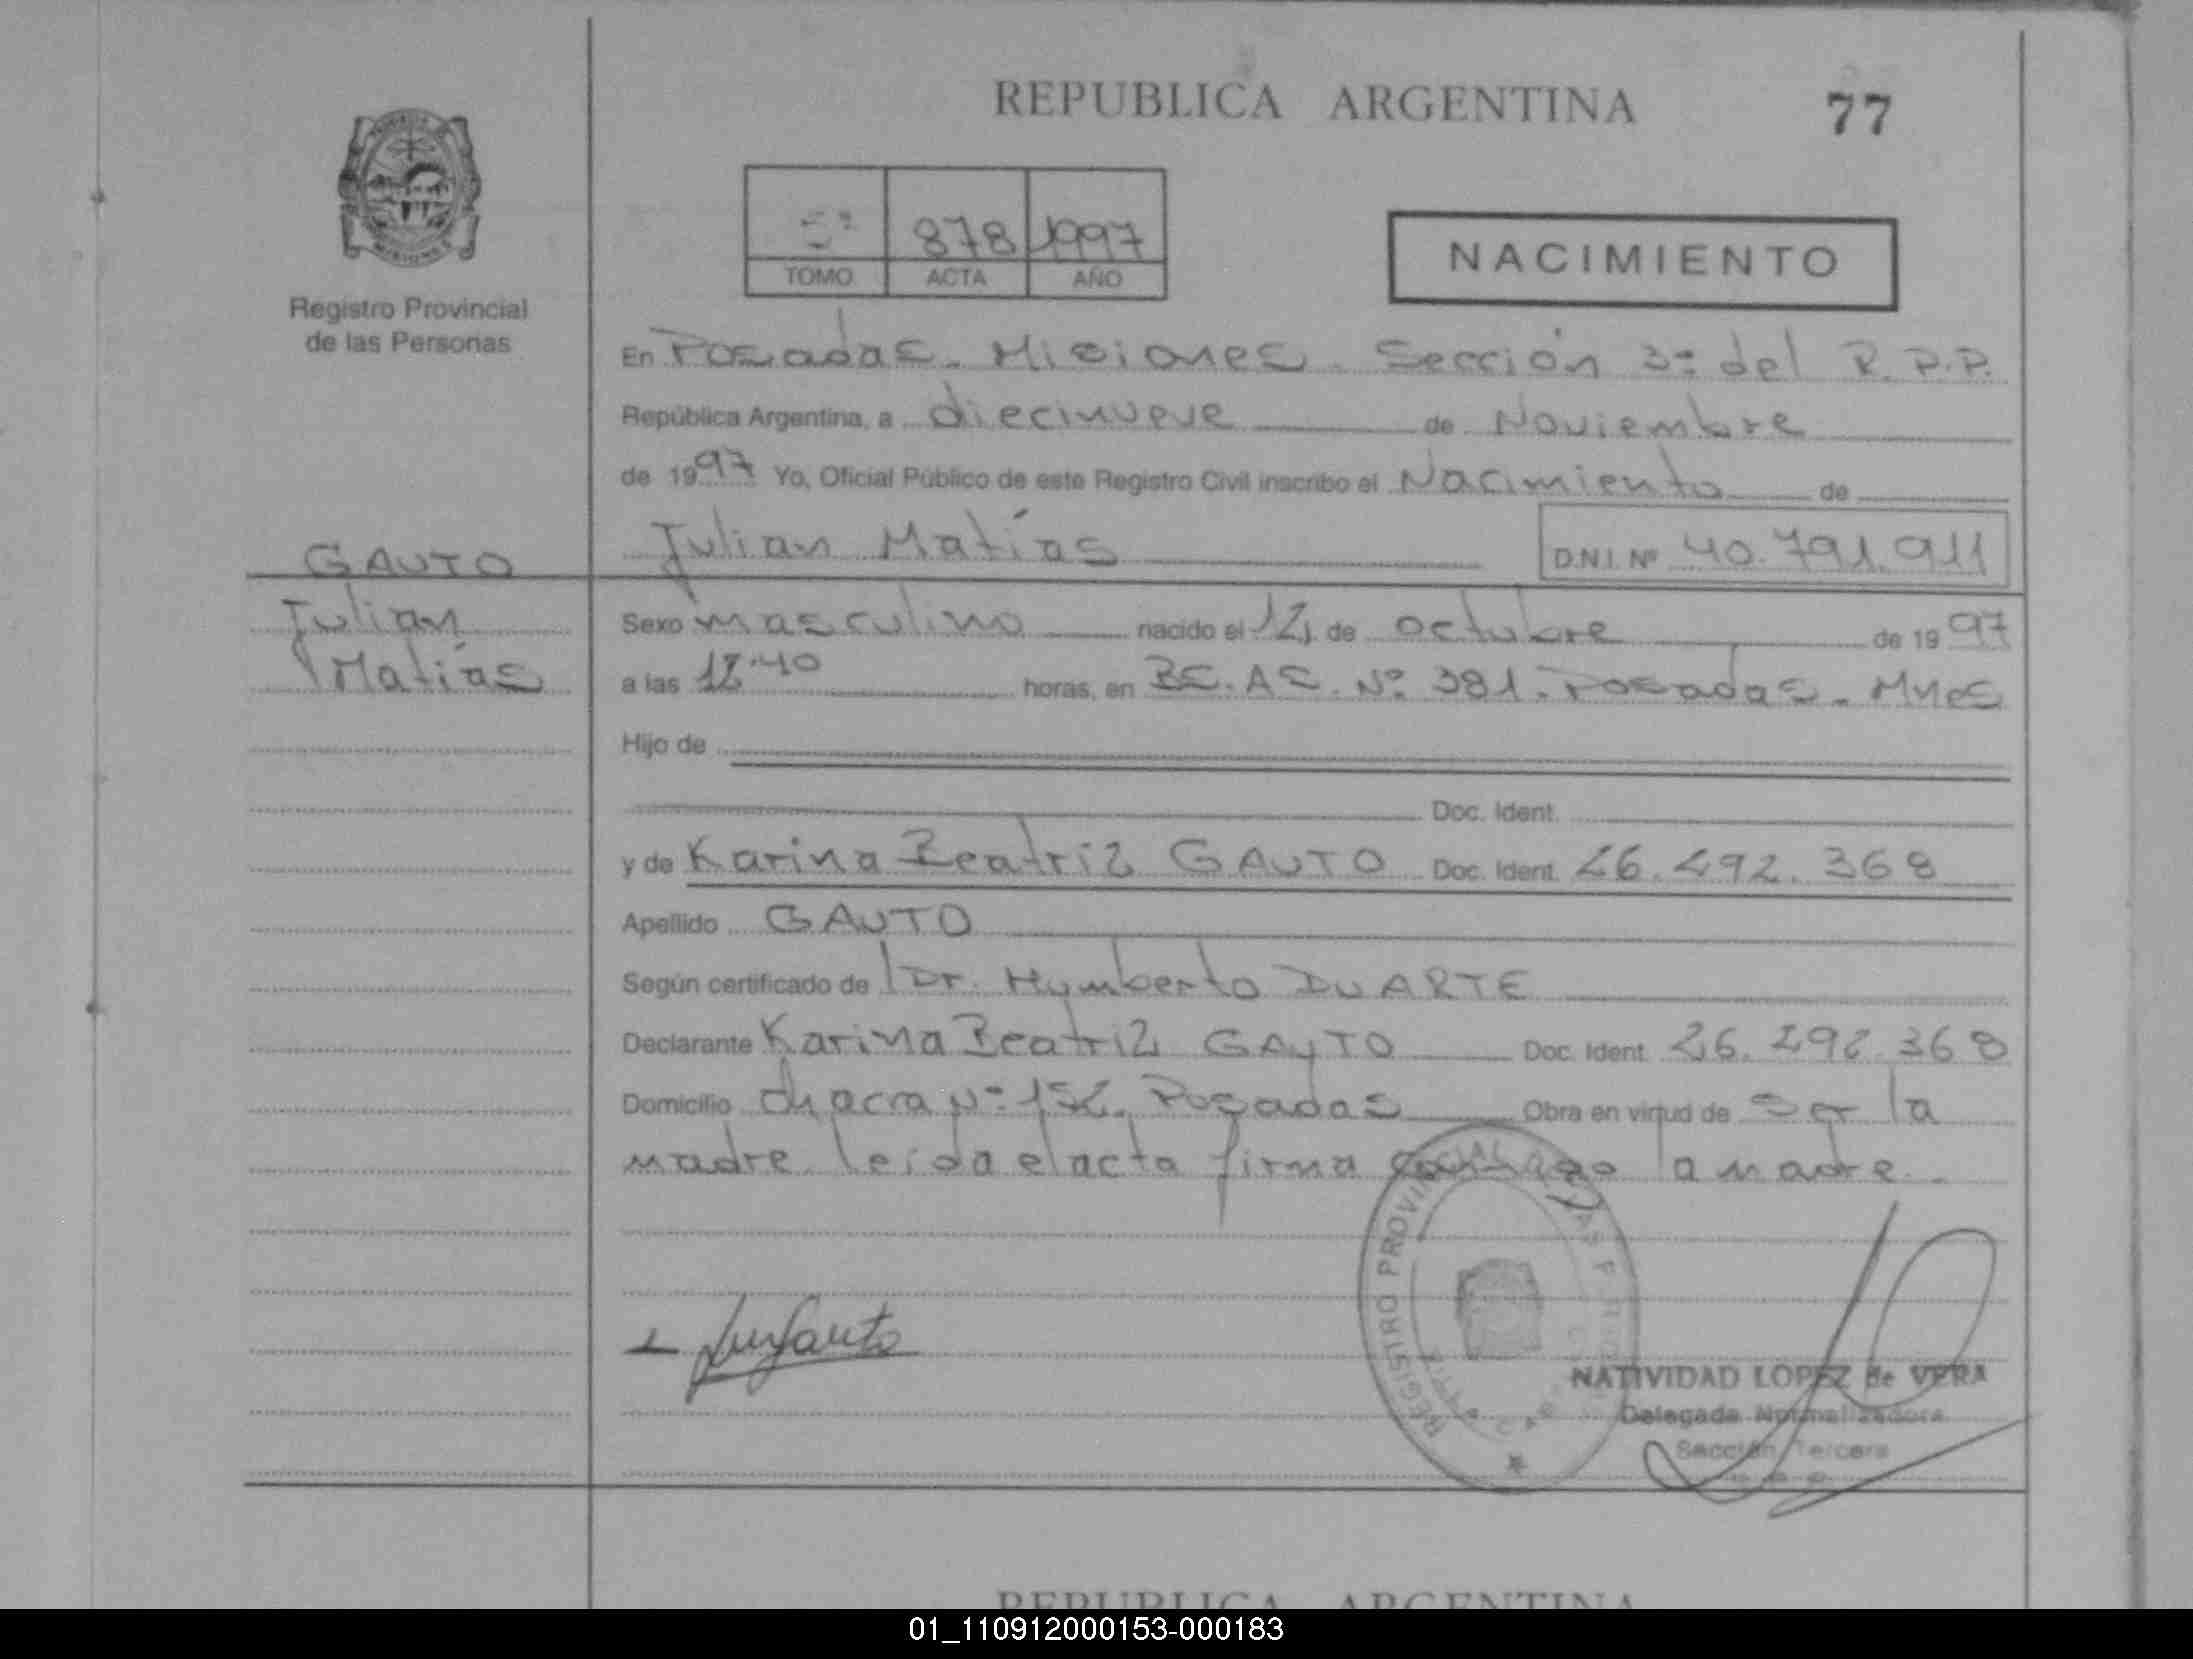 REPUBLICA ARGENTINA
77
5º 878 1997
TOMO ACTA AÑO
NACIMIENTO
Registro Provincial
de las Personas
En Posadas. Misiones. Sección 3º del R.P.P.
República Argentina, a diecinueve de Noviembre
de 1997 Yo, Oficial Público de este Registro Civil inscribo el Nacimiento de
Julian Matías D.N.I. Nº 40.791.911
GAUTO
Julian
Matías
Sexo masculino nacido el 12 de octubre de 1997
a las 12:40 horas, en BS. AS. Nº 381. Posadas. Mnes
Hijo de
Doc. Ident.
y de Karina Beatriz GAUTO Doc. Ident. 26.292.368
Apellido GAUTO
Según certificado de Dr. Humberto DUARTE
Declarante Karina Beatriz GAUTO Doc. Ident. 26.292.368
Domicilio chacra Nº 152. Posadas Obra en virtud de ser la
madre leida el acta firma conmigo la madre.
REGISTRO PROVINCIAL
NATIVIDAD LOPEZ de VERA
Delegada Normalizadora
Sección Tercera
REPUBLICA ARGENTINA
01_110912000153-000183